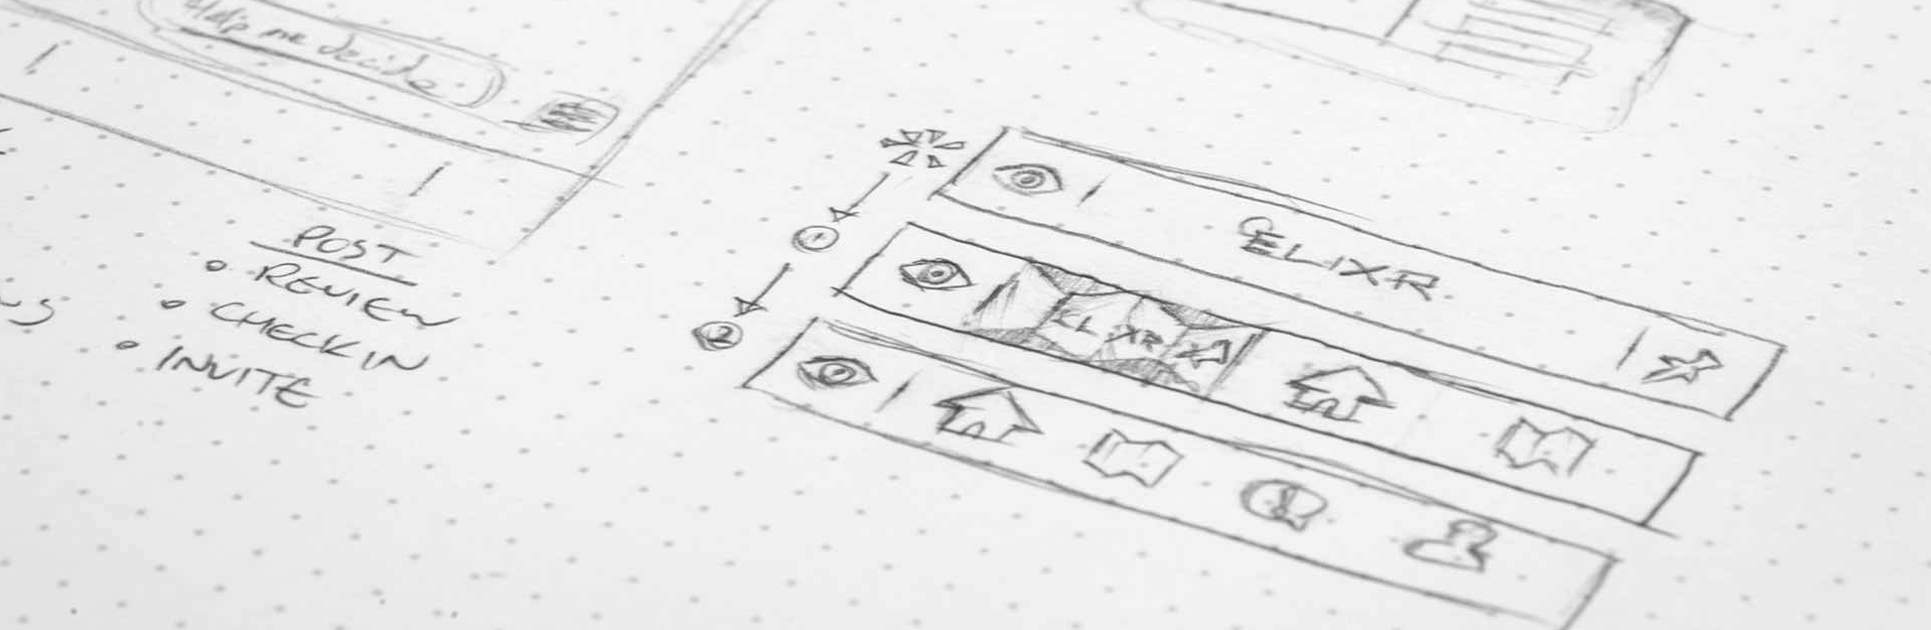 Help me decide
POST
REVIEW
CHECKIN
INVITE
ELIXR
1
ELIXR
2